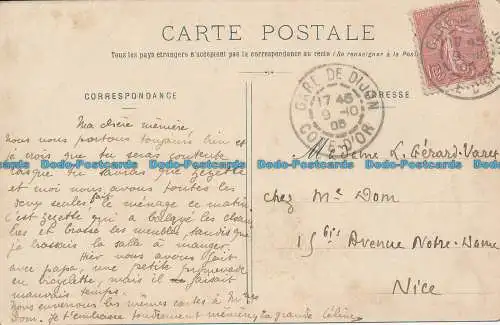 CARTE POSTALE
Tous les pays étrangers n'acceptent pas la correspondance au recto (Se renseigner à la Poste)
CORRESPONDANCE
ADRESSE
GARE DE DIJON
17 45
9 -10
05
COTE-D'OR
Ma chère mémère,
Nous nous portons toujours bien et
je crois que tu seras contente
lorsque tu sauras que Zézette
et moi nous avons toutes les
deux seules fait le ménage ce matin
C'est Zézette qui a balayé les cham
bres et brossé les meubles, tandis que
je brossais la salle à manger.
Hier nous avons fait
avec papa, une petite promenade
en bicyclette, mais il faisait
mauvais temps.
Nous enverrons les mêmes cartes à Mme
Dom. Je t'embrasse tendrement mémère, ta grande Céline
Madame L. Gérard-Varet
chez Me Dom
15bis Avenue Notre-Dame
Nice
Dodo-Postcards Dodo-Postcards Dodo-Postcards Dodo-Postcards